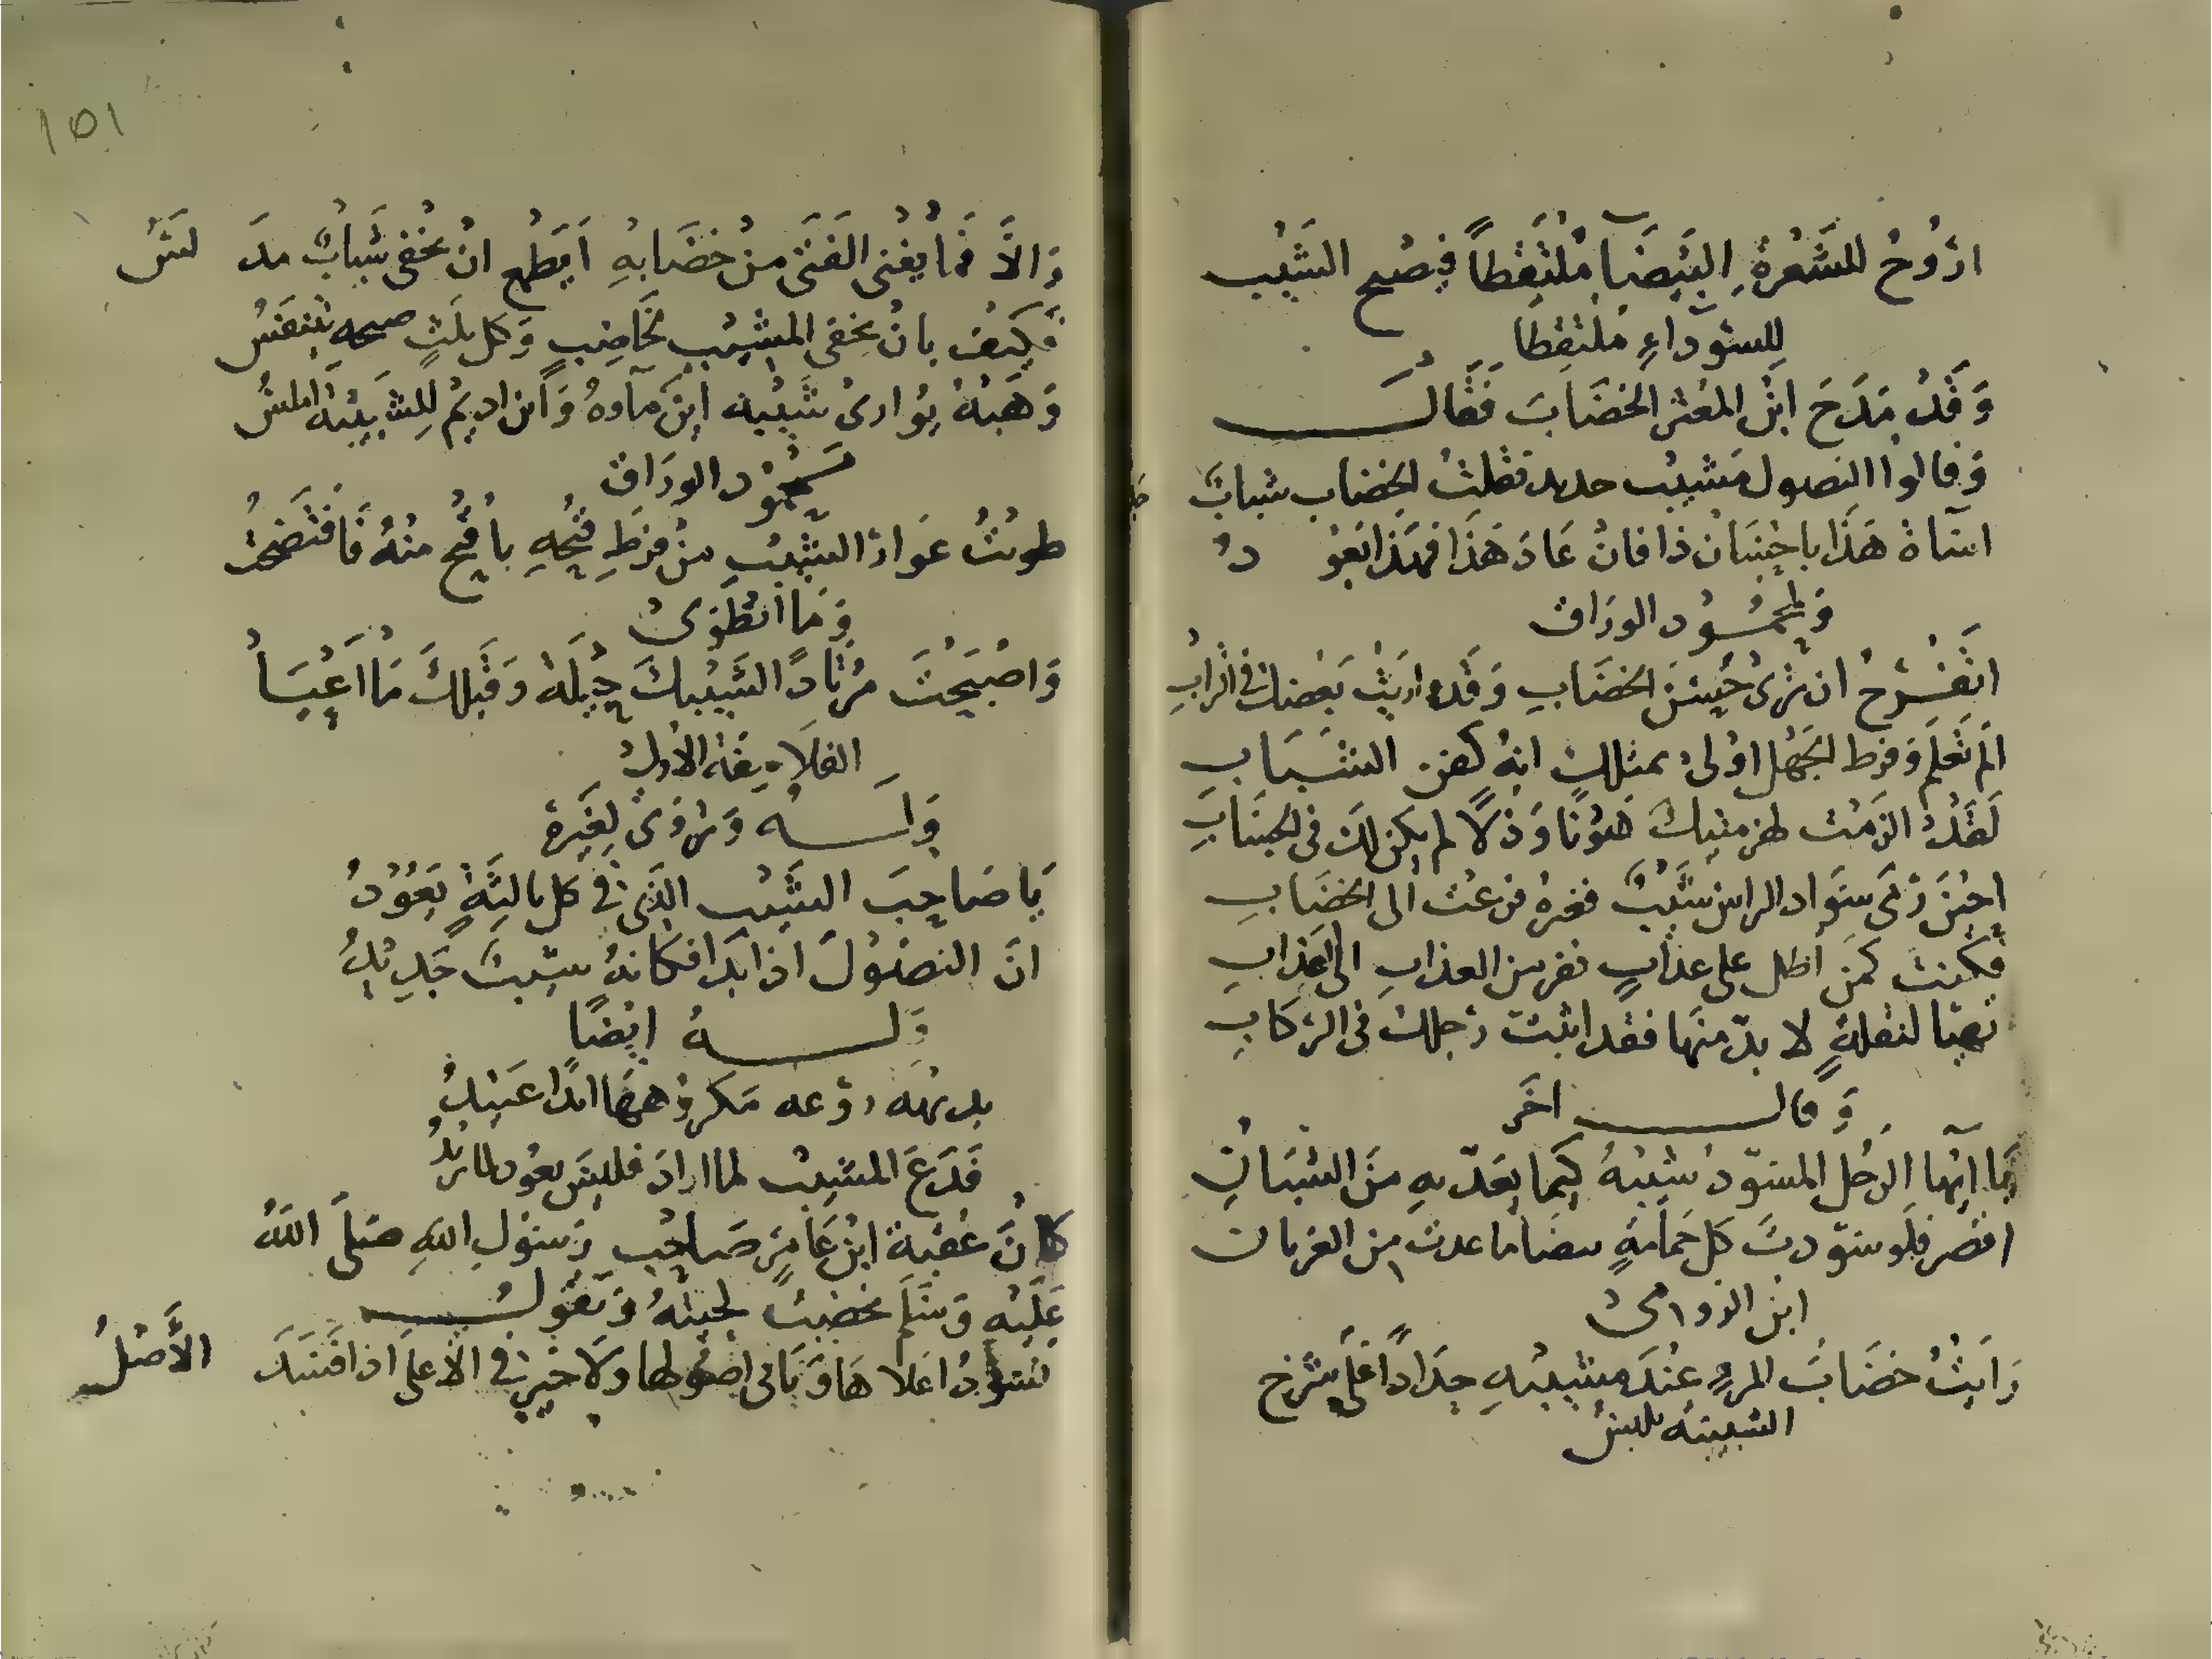 اروح للشعرة البيضاء ملتقطاً فيصبح الشيب
للسوداء ملتقطا
وَقَدْ مَدَحَ ابنُ المعتز الخضَابَ فَقَالَ
وَقالوا النصول مشيب جديد فقلت الخضاب شباب
اساة هَذَا باحسَان ذا فان عَادَ هَذَا فهذا يعود
وَلمحمُود الورَاق
اتَفْرح ان ترى حُسْنَ الخضَابِ وَقَد واريت بَعضك في الترابِ
الَم تَعلم وَفرط الجَهْل اوْلى بمثلك انهُ كفن الشَبَابِ
لَقَدْ الزمْت لهزمتيك هَوْنًا وَذلاً لم يكن لك فى الحسَابِ
احِيْنَ رَمَى سَوَاد الراس شَيْبٌ فغيرهُ فزعت الى الخضَابِ
فكنت كمَن اظل على عذابٍ ففر من العذابِ الى العَذابِ
تهيا لنقلةٍ لا بدّ منهَا فقد اثبت رجلك فى الركابِ
وَقال اخَر
يَا ايّهَا الرَجُل المسَوّد شيبهُ كيما يعَدّ بهِ منَ الشبَانِ
اقصر فلَو سَوّدتَ كل حَمامَةٍ بيضَا ما عدت من الغربان
ابن الرومى
رَايتُ خضَابَ المرءِ عنْدَ مشيبهِ حِدَاداً عَلى شرخ
الشبيبة يلبسُ
وَالاَّ فمَا يغنى الفَتَى منْ خضَابهِ اَيَطمع انْ يخفى شَبابٌ مدلس
فَكيف بانْ يخفى المشيب لخَاضِبٍ وَكل ثلثٍ صبحه يتنفسُ
وَهَبهُ يوارى شَيْبه اينَ ماوهُ وَاين اديم للشبيبة املسُ
محمُود الورَاق
طويتُ عَوَار الشيب منْ فرَطِ قبحِهِ باقبح منْهُ فَافتَضَحت
وَمَا انطَوى
وَاصْبَحْتَ مُرتاداً لشيبكَ حِيْلَةً وَقَبلكَ مَا اَعْيَا
الفلاسفة الاول
وَلـــهُ وَيروَى لغَيره
يَا صَاحِبَ الشيب الذى فى كل ثالثةٍ يَعُوْدُ
انَ النصُولَ اذا بَدَا فكانهُ شيبٌ جَدِيْدُ
وَلـــهُ ايضًا
بديهَة روعه مَكروههَا ابدًا عَتيدُ
فَدَع المشيب لما ارادَ فليسَ يعود لما تريدُ
كَانَ عُقبَة ابن عَامر صَاحِب رَسُولِ اللهِ صَلَّى اللهُ
عَلَيْهِ وَسَلَّم يخضبُ لحيتهُ وَيَقول
نسَوّدُ اعلاهَا وَتَابى اصُولها وَلا خير فى الاعلى اذا فسَدَ الأَصْلُ